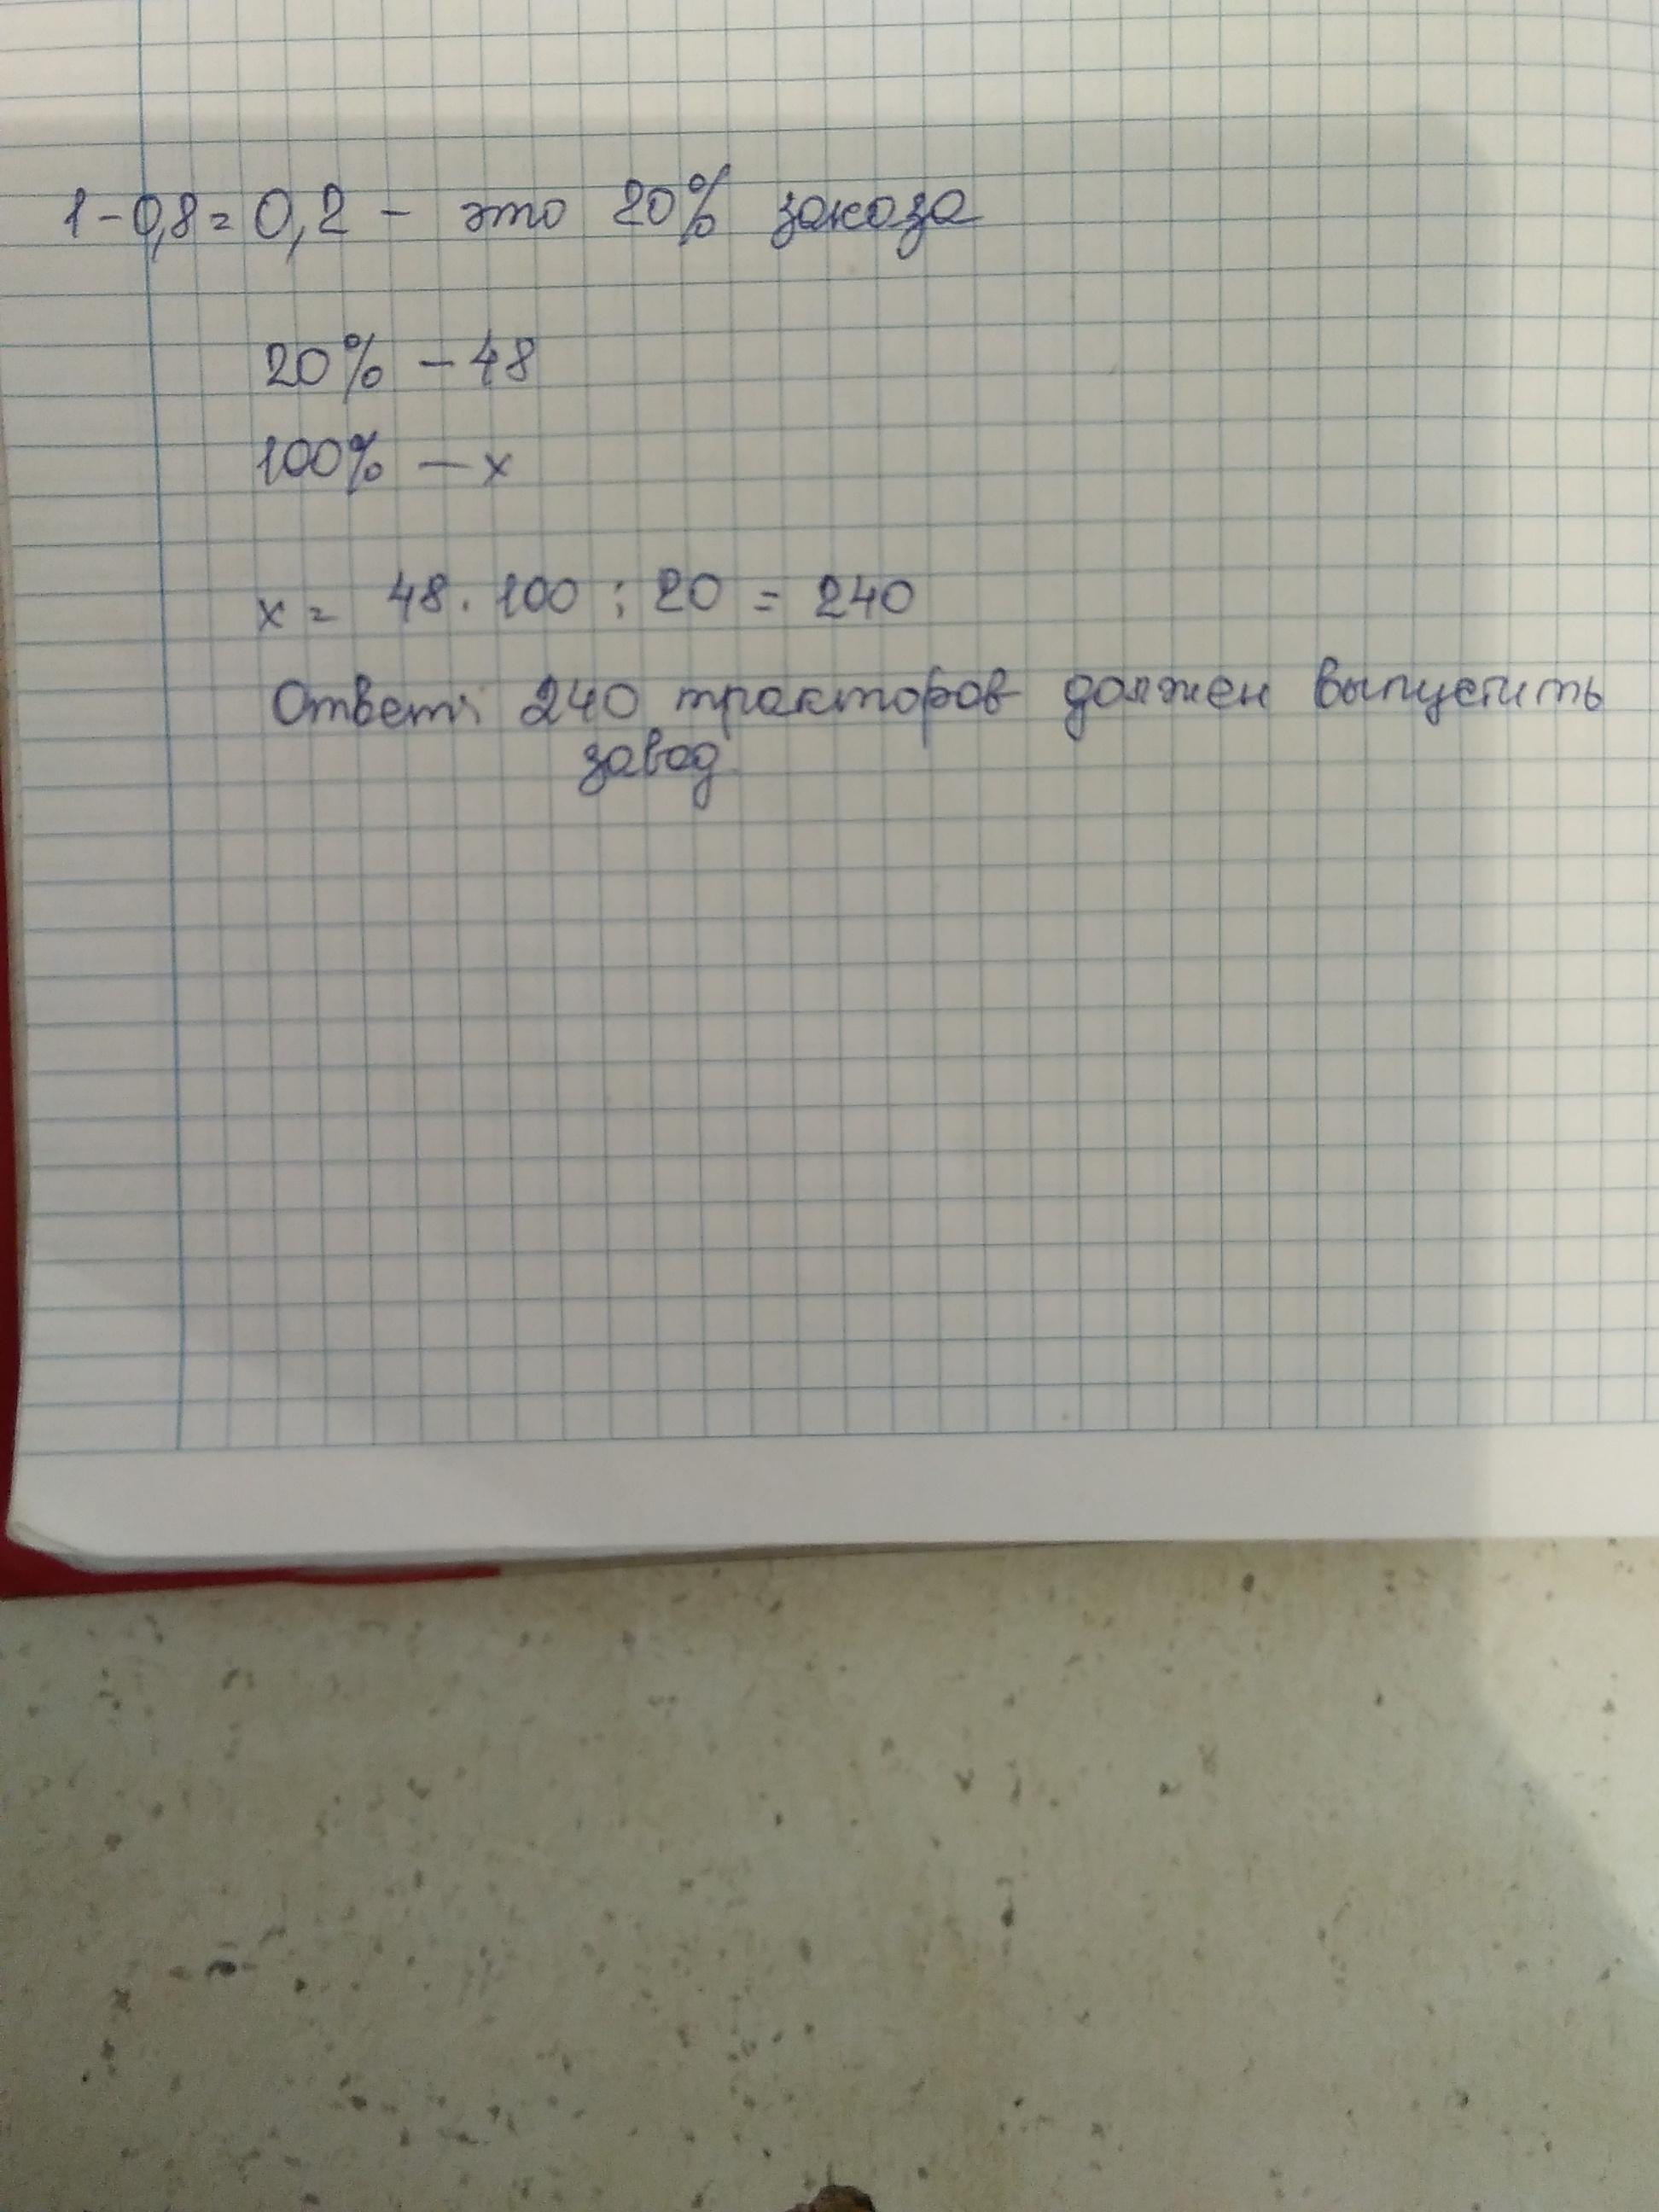 1-0,8=0,2 - это 20% заказа
20% - 48
100% - х
х = 48 · 100 : 20 = 240
Ответ: 240 тракторов должен выпустить
завод